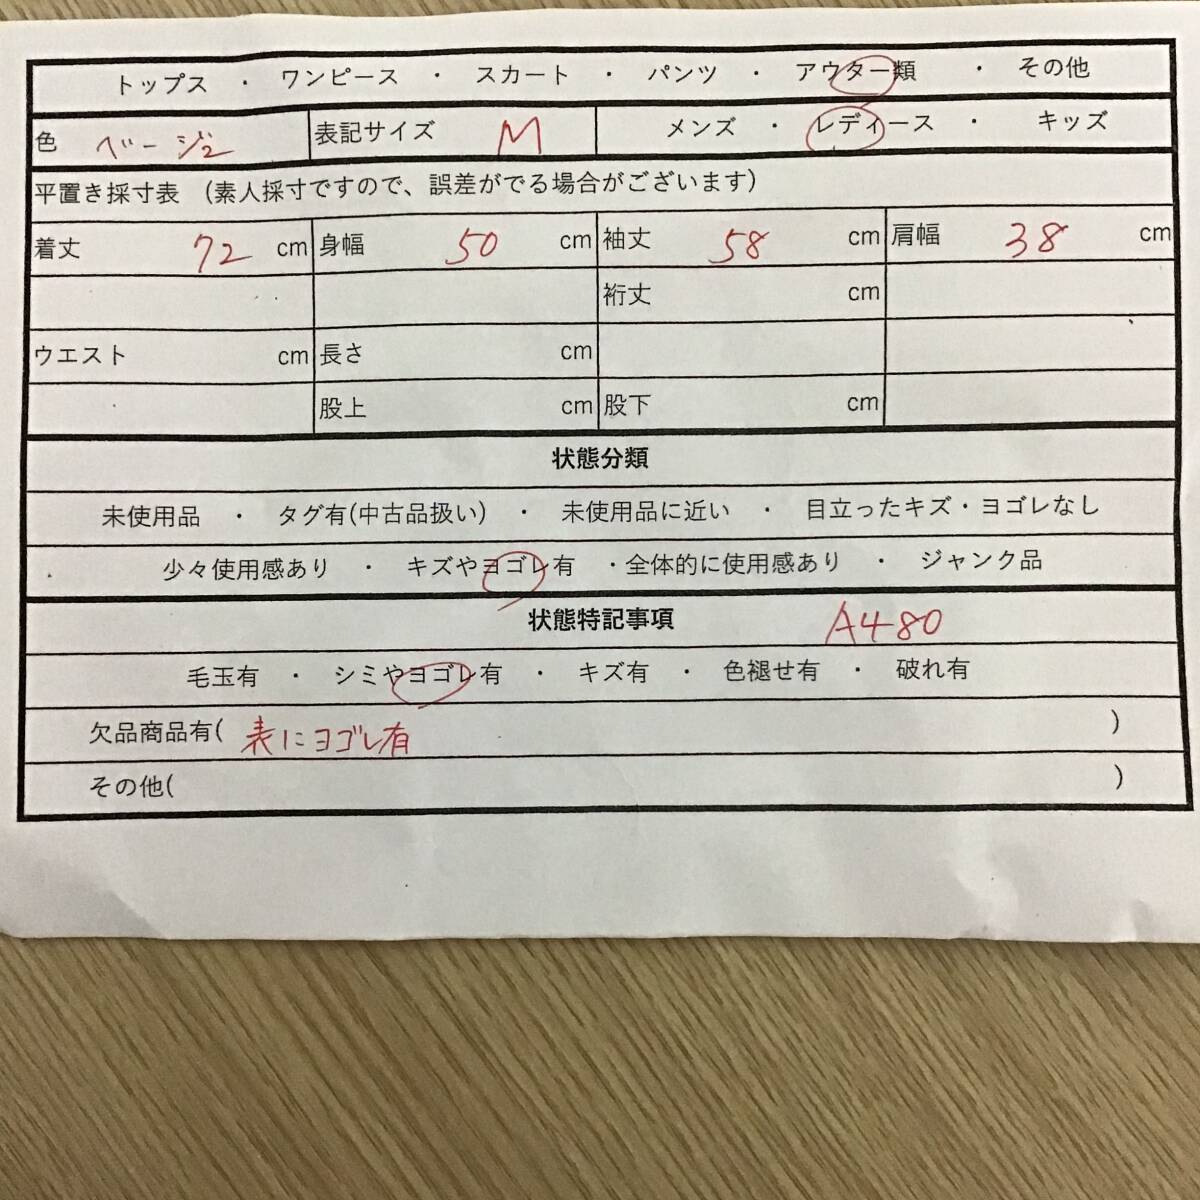 トップス ・ ワンピース ・ スカート ・ パンツ ・ アウター類 ・ その他
色 ベージュ 表記サイズ M メンズ ・ レディース ・ キッズ
平置き採寸表 (素人採寸ですので、誤差がでる場合がございます)
着丈 72 cm 身幅 50 cm 袖丈 58 cm 肩幅 38 cm
裄丈 cm
ウエスト cm 長さ cm
股上 cm 股下 cm
状態分類
未使用品 ・ タグ有(中古品扱い) ・ 未使用品に近い ・ 目立ったキズ・ヨゴレなし
少々使用感あり ・ キズやヨゴレ有 ・全体的に使用感あり ・ ジャンク品
状態特記事項 A480
毛玉有 ・ シミやヨゴレ有 ・ キズ有 ・ 色褪せ有 ・ 破れ有
欠品商品有( 表にヨゴレ有 )
その他( )